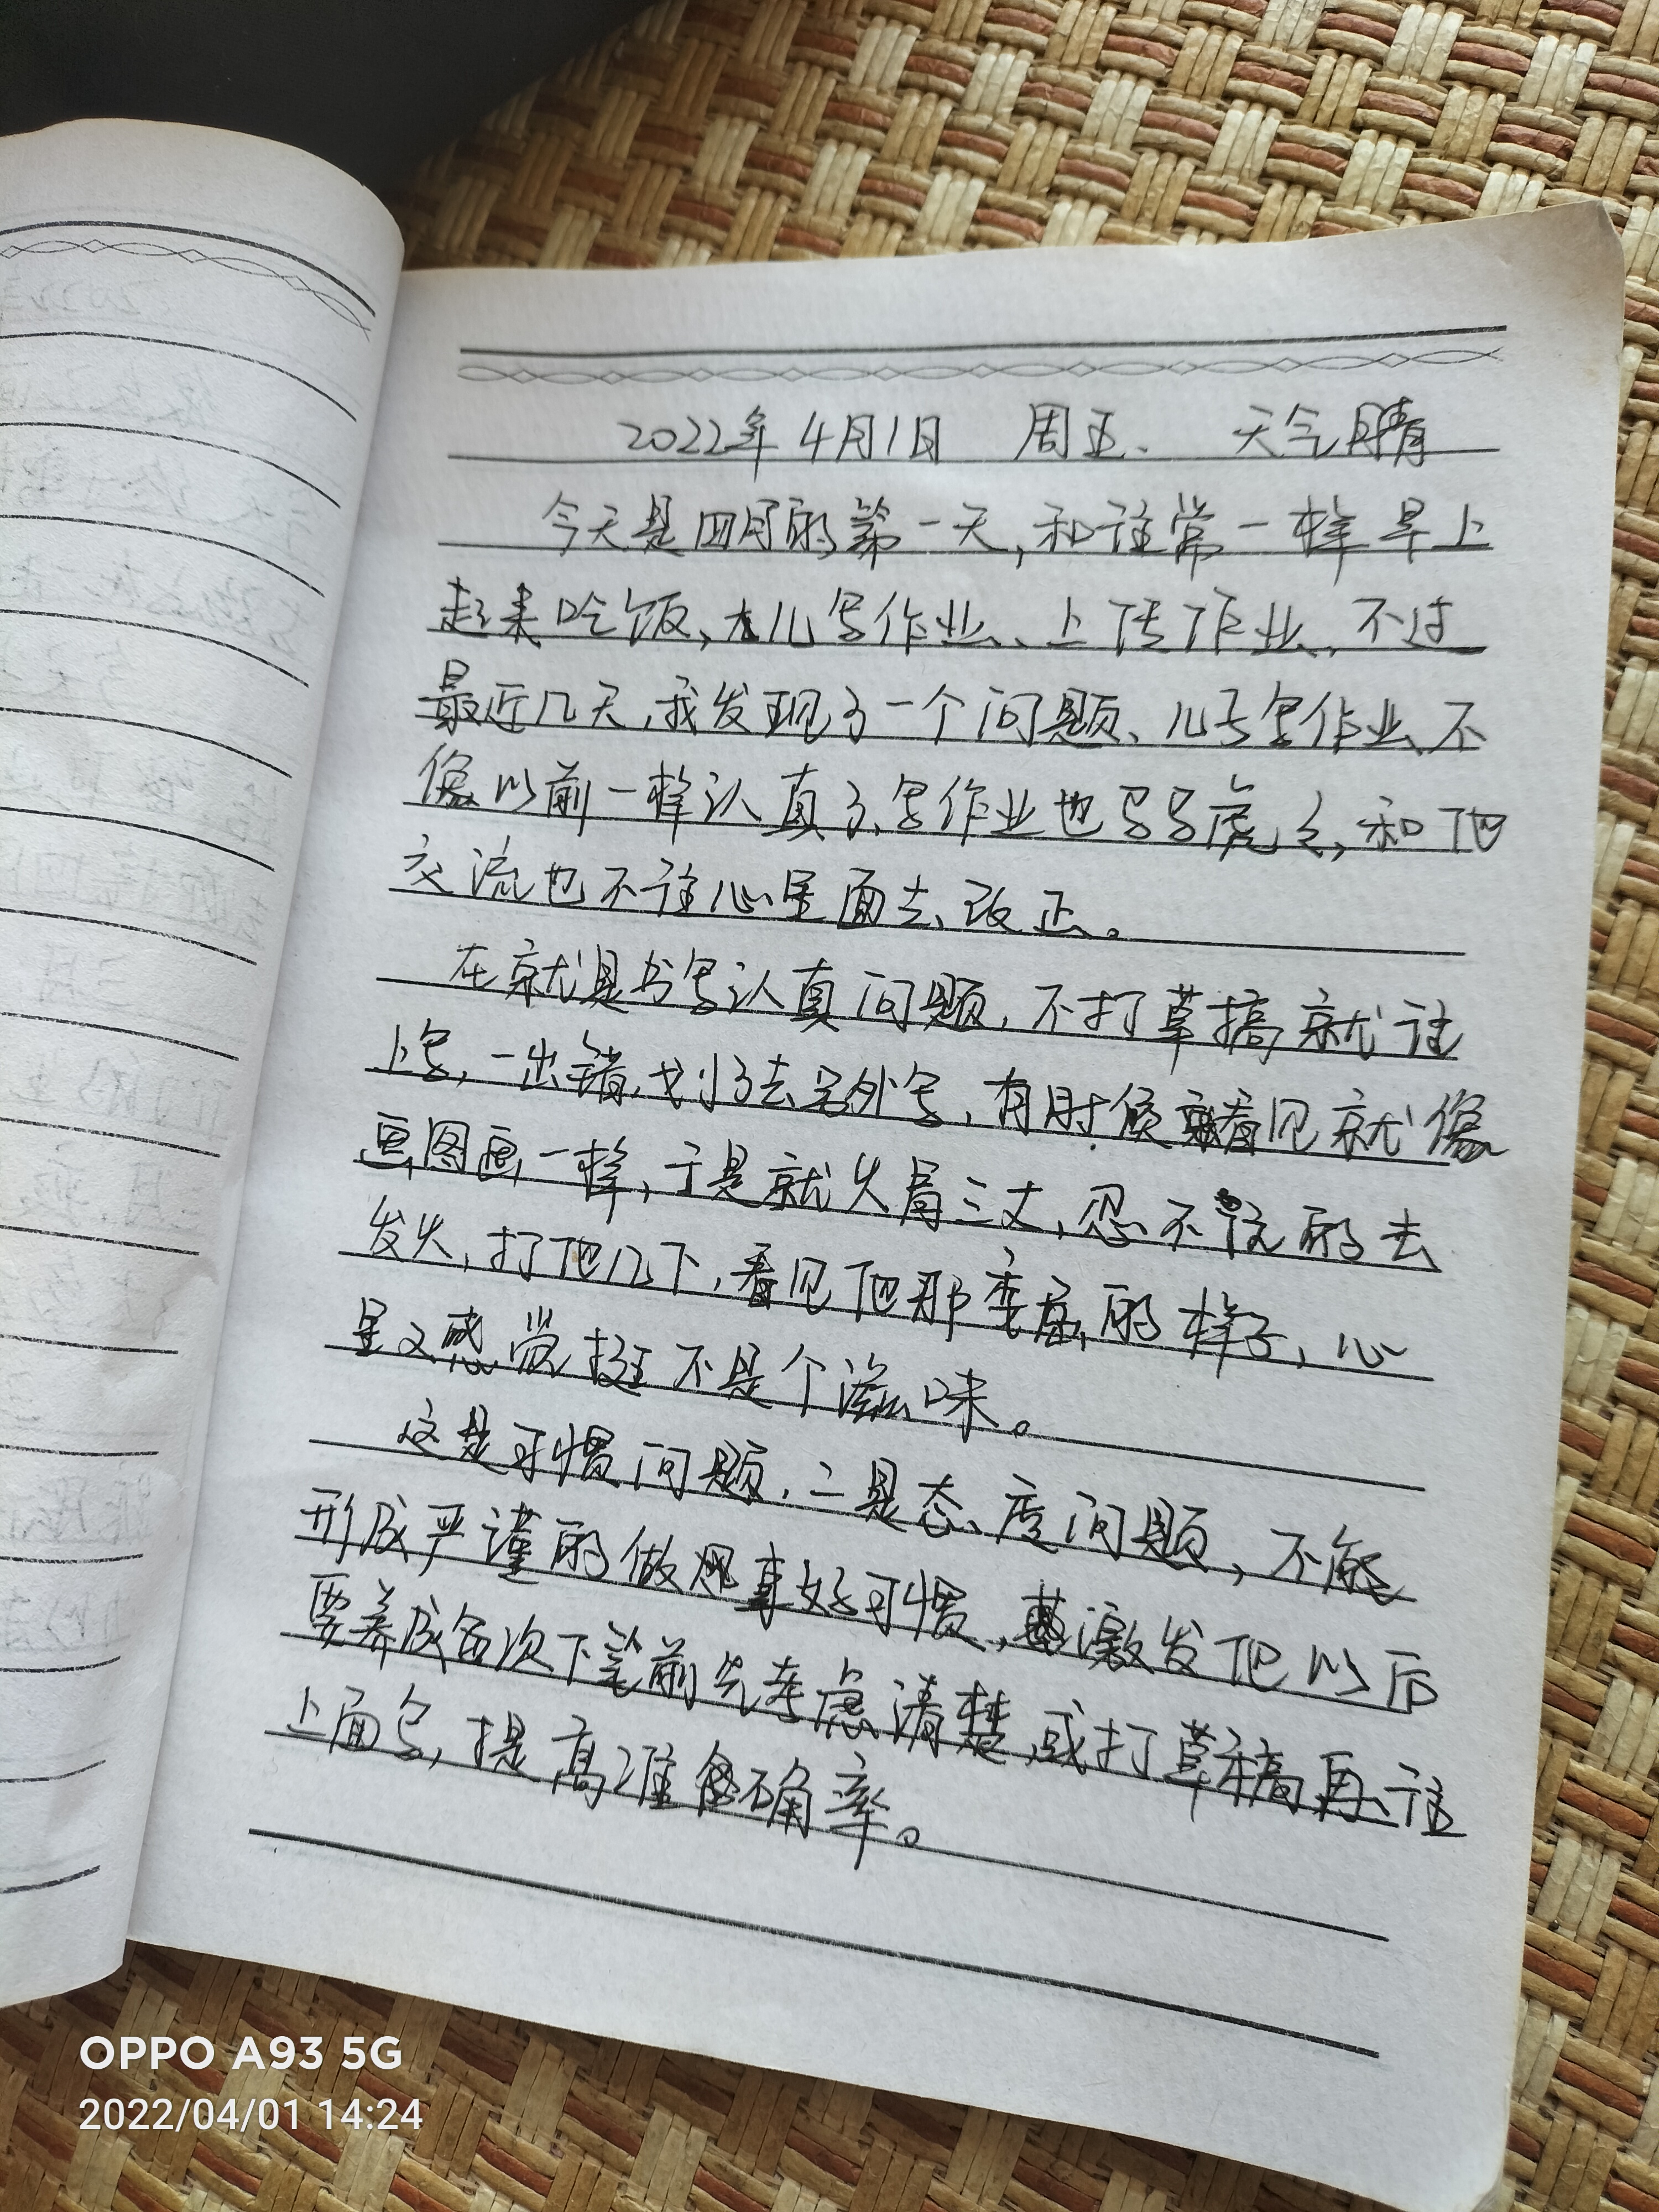 2022年4月1日 周五、 天气晴
今天是四月的第一天,和往常一样早上
起来吃饭,儿写作业、上传作业,不过
最近几天,我发现了一个问题、儿子写作业不
像以前一样认真了、写作业也马马虎之,和他
交流也不往心里面去、改正。
在就是书写认真问题,不打草搞就往
上写,一出错,划了去另外写,有时候看见就像
画图画一样,于是就火冒三丈,忍不住的去
发火,打他几下,看见他那委屈的样子,心
里又感觉挺不是个滋味。
这是习惯问题,二是态度问题,不能
形成严谨的做事好习惯,激发他以后
要养成每次下笔前先考虑清楚,或打草稿再往
上面写,提高准确率。
OPPO A93 5G
2022/04/01 14:24